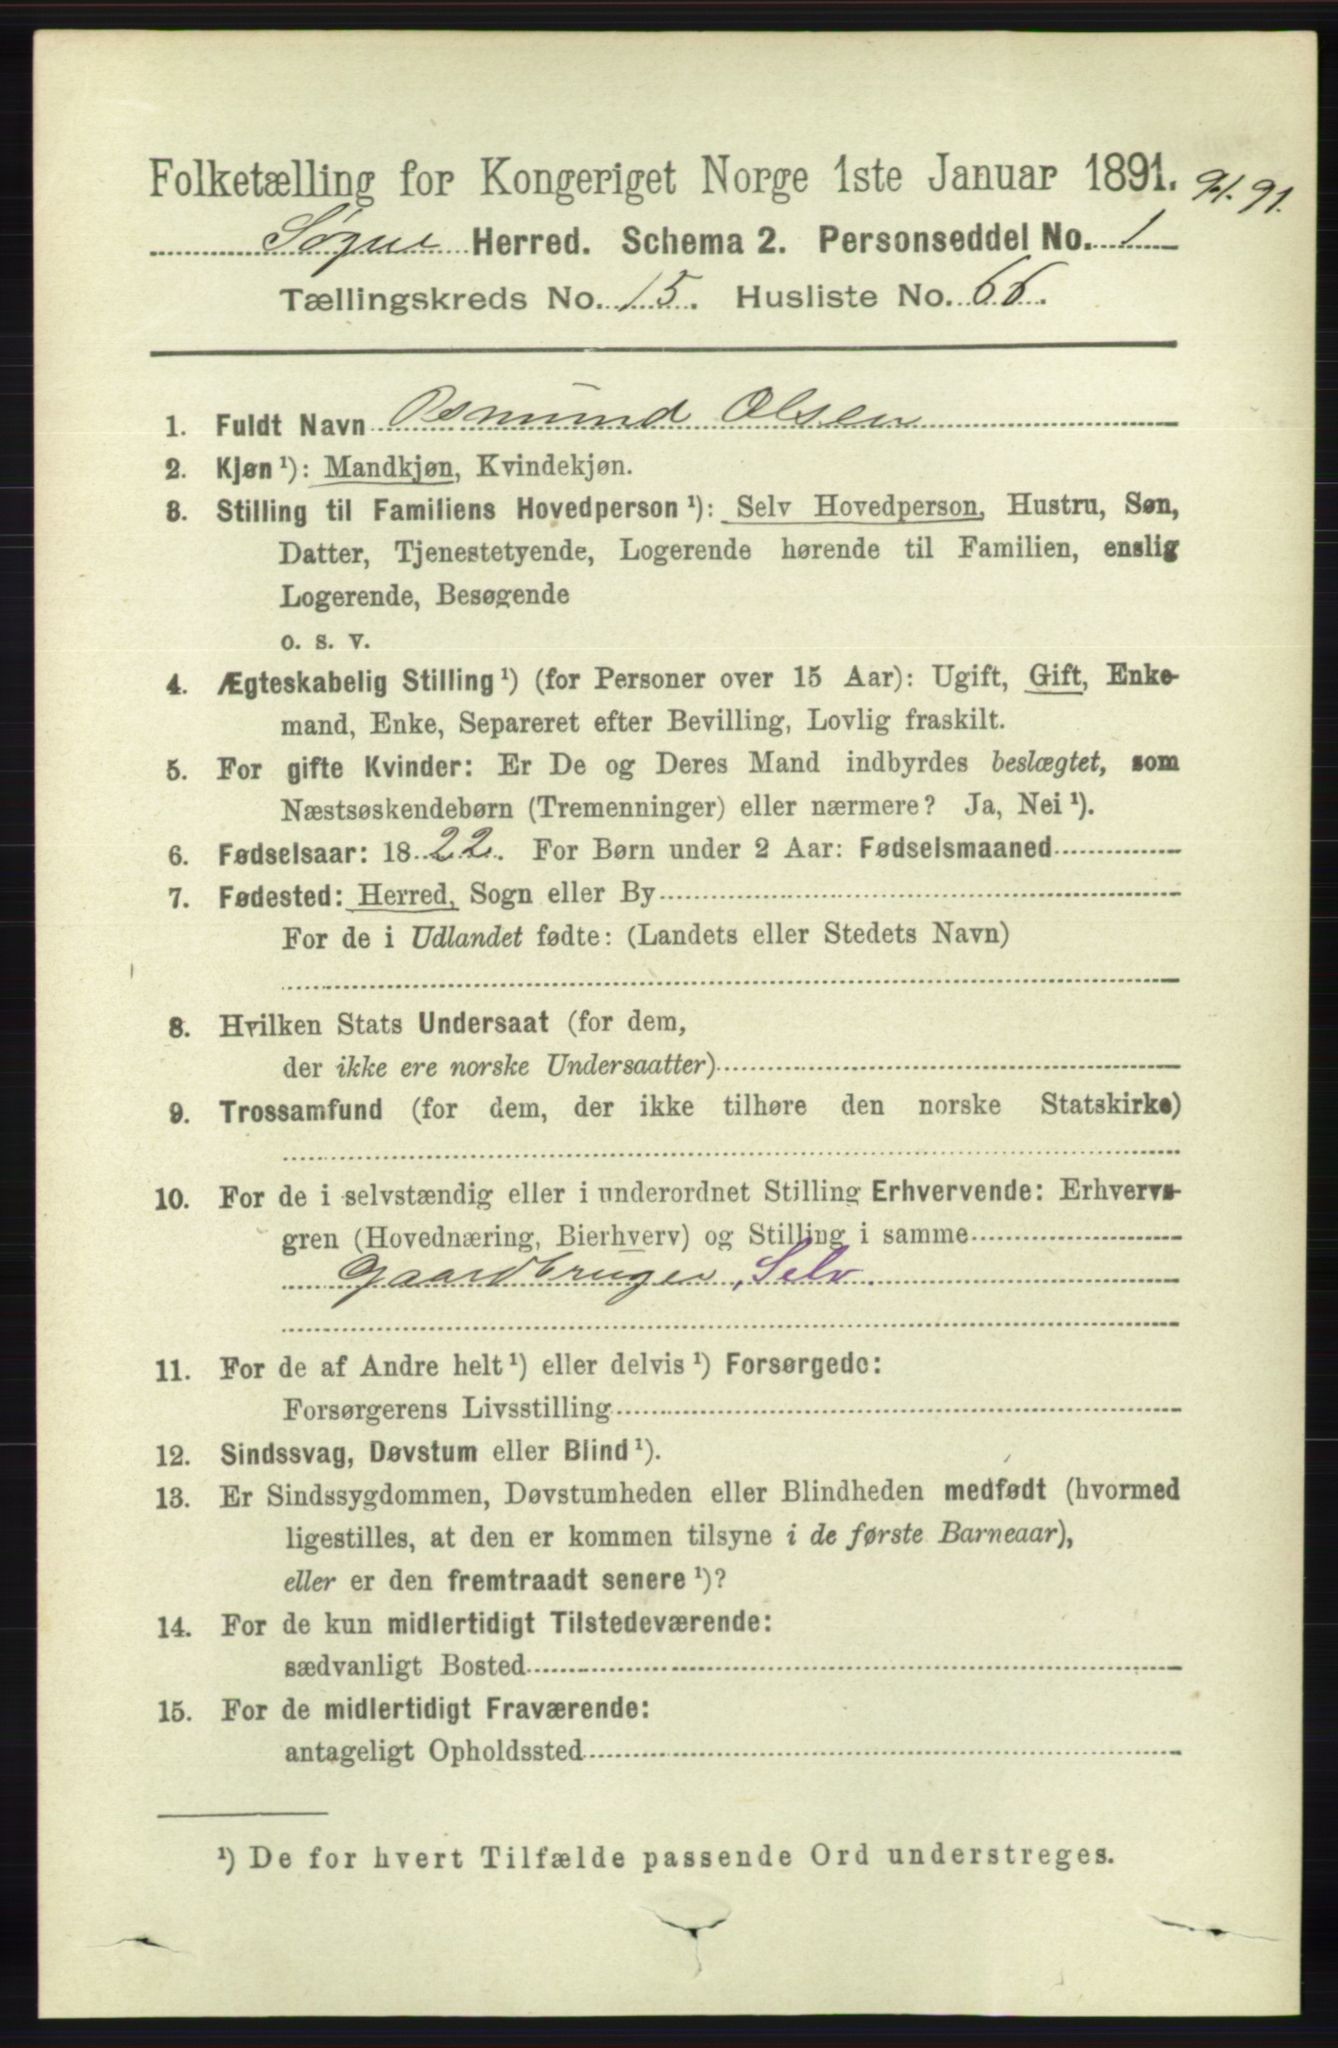 Folketælling for Kongeriget Norge 1ste Januar 1891.
Søgne Herred. Schema 2. Personseddel No. 1
Tællingskreds No. 15. Husliste No. 66.
1. Fuldt Navn Osmund Olsen
2. Kjøn ¹): Mandkjøn, Kvindekjøn.
3. Stilling til Familiens Hovedperson ¹): Selv Hovedperson, Hustru, Søn,
Datter, Tjenestetyende, Logerende hørende til Familien, enslig
Logerende, Besøgende
o. s. v.
4. Ægteskabelig Stilling ¹) (for Personer over 15 Aar): Ugift, Gift, Enke-
mand, Enke, Separeret efter Bevilling, Lovlig fraskilt.
5. For gifte Kvinder: Er De og Deres Mand indbyrdes beslægtet, som
Næstsøskendebørn (Tremenninger) eller nærmere? Ja, Nei ¹).
6. Fødselsaar: 1822. For Børn under 2 Aar: Fødselsmaaned
7. Fødested: Herred, Sogn eller By
For de i Udlandet fødte: (Landets eller Stedets Navn)
8. Hvilken Stats Undersaat (for dem,
der ikke ere norske Undersaatter)
9. Trossamfund (for dem, der ikke tilhøre den norske Statskirke)
10. For de i selvstændig eller i underordnet Stilling Erhvervende: Erhvervs-
gren (Hovednæring, Bierhverv) og Stilling i samme
Gaardbruger, Selv.
11. For de af Andre helt ¹) eller delvis ¹) Forsørgede:
Forsørgerens Livsstilling
12. Sindssvag, Døvstum eller Blind ¹).
13. Er Sindssygdommen, Døvstumheden eller Blindheden medfødt (hvormed
ligestilles, at den er kommen tilsyne i de første Barneaar),
eller er den fremtraadt senere ¹)?
14. For de kun midlertidigt Tilstedeværende:
sædvanligt Bosted
15. For de midlertidigt Fraværende:
antageligt Opholdssted
¹) De for hvert Tilfælde passende Ord understreges.